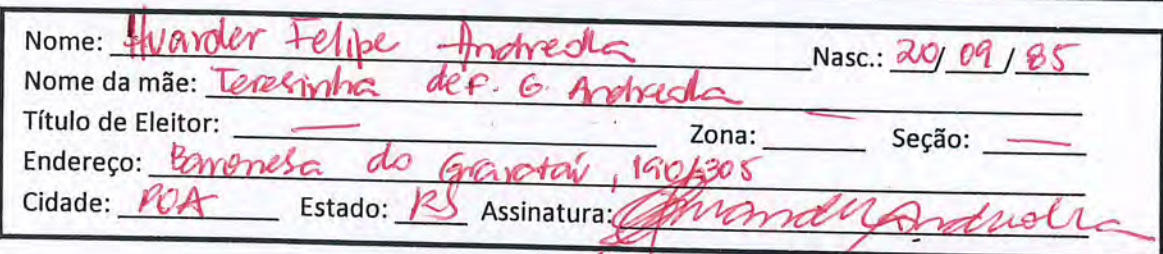 Nome: Felipe Andreolla Nasc.: 20/09/85
Nome da mãe: Teresinha de F. G. Andreolla
Título de Eleitor: — Zona: — Seção: —
Endereço: Baronesa do Gravataí, 190/305
Cidade: POA Estado: RS Assinatura: Andreolla